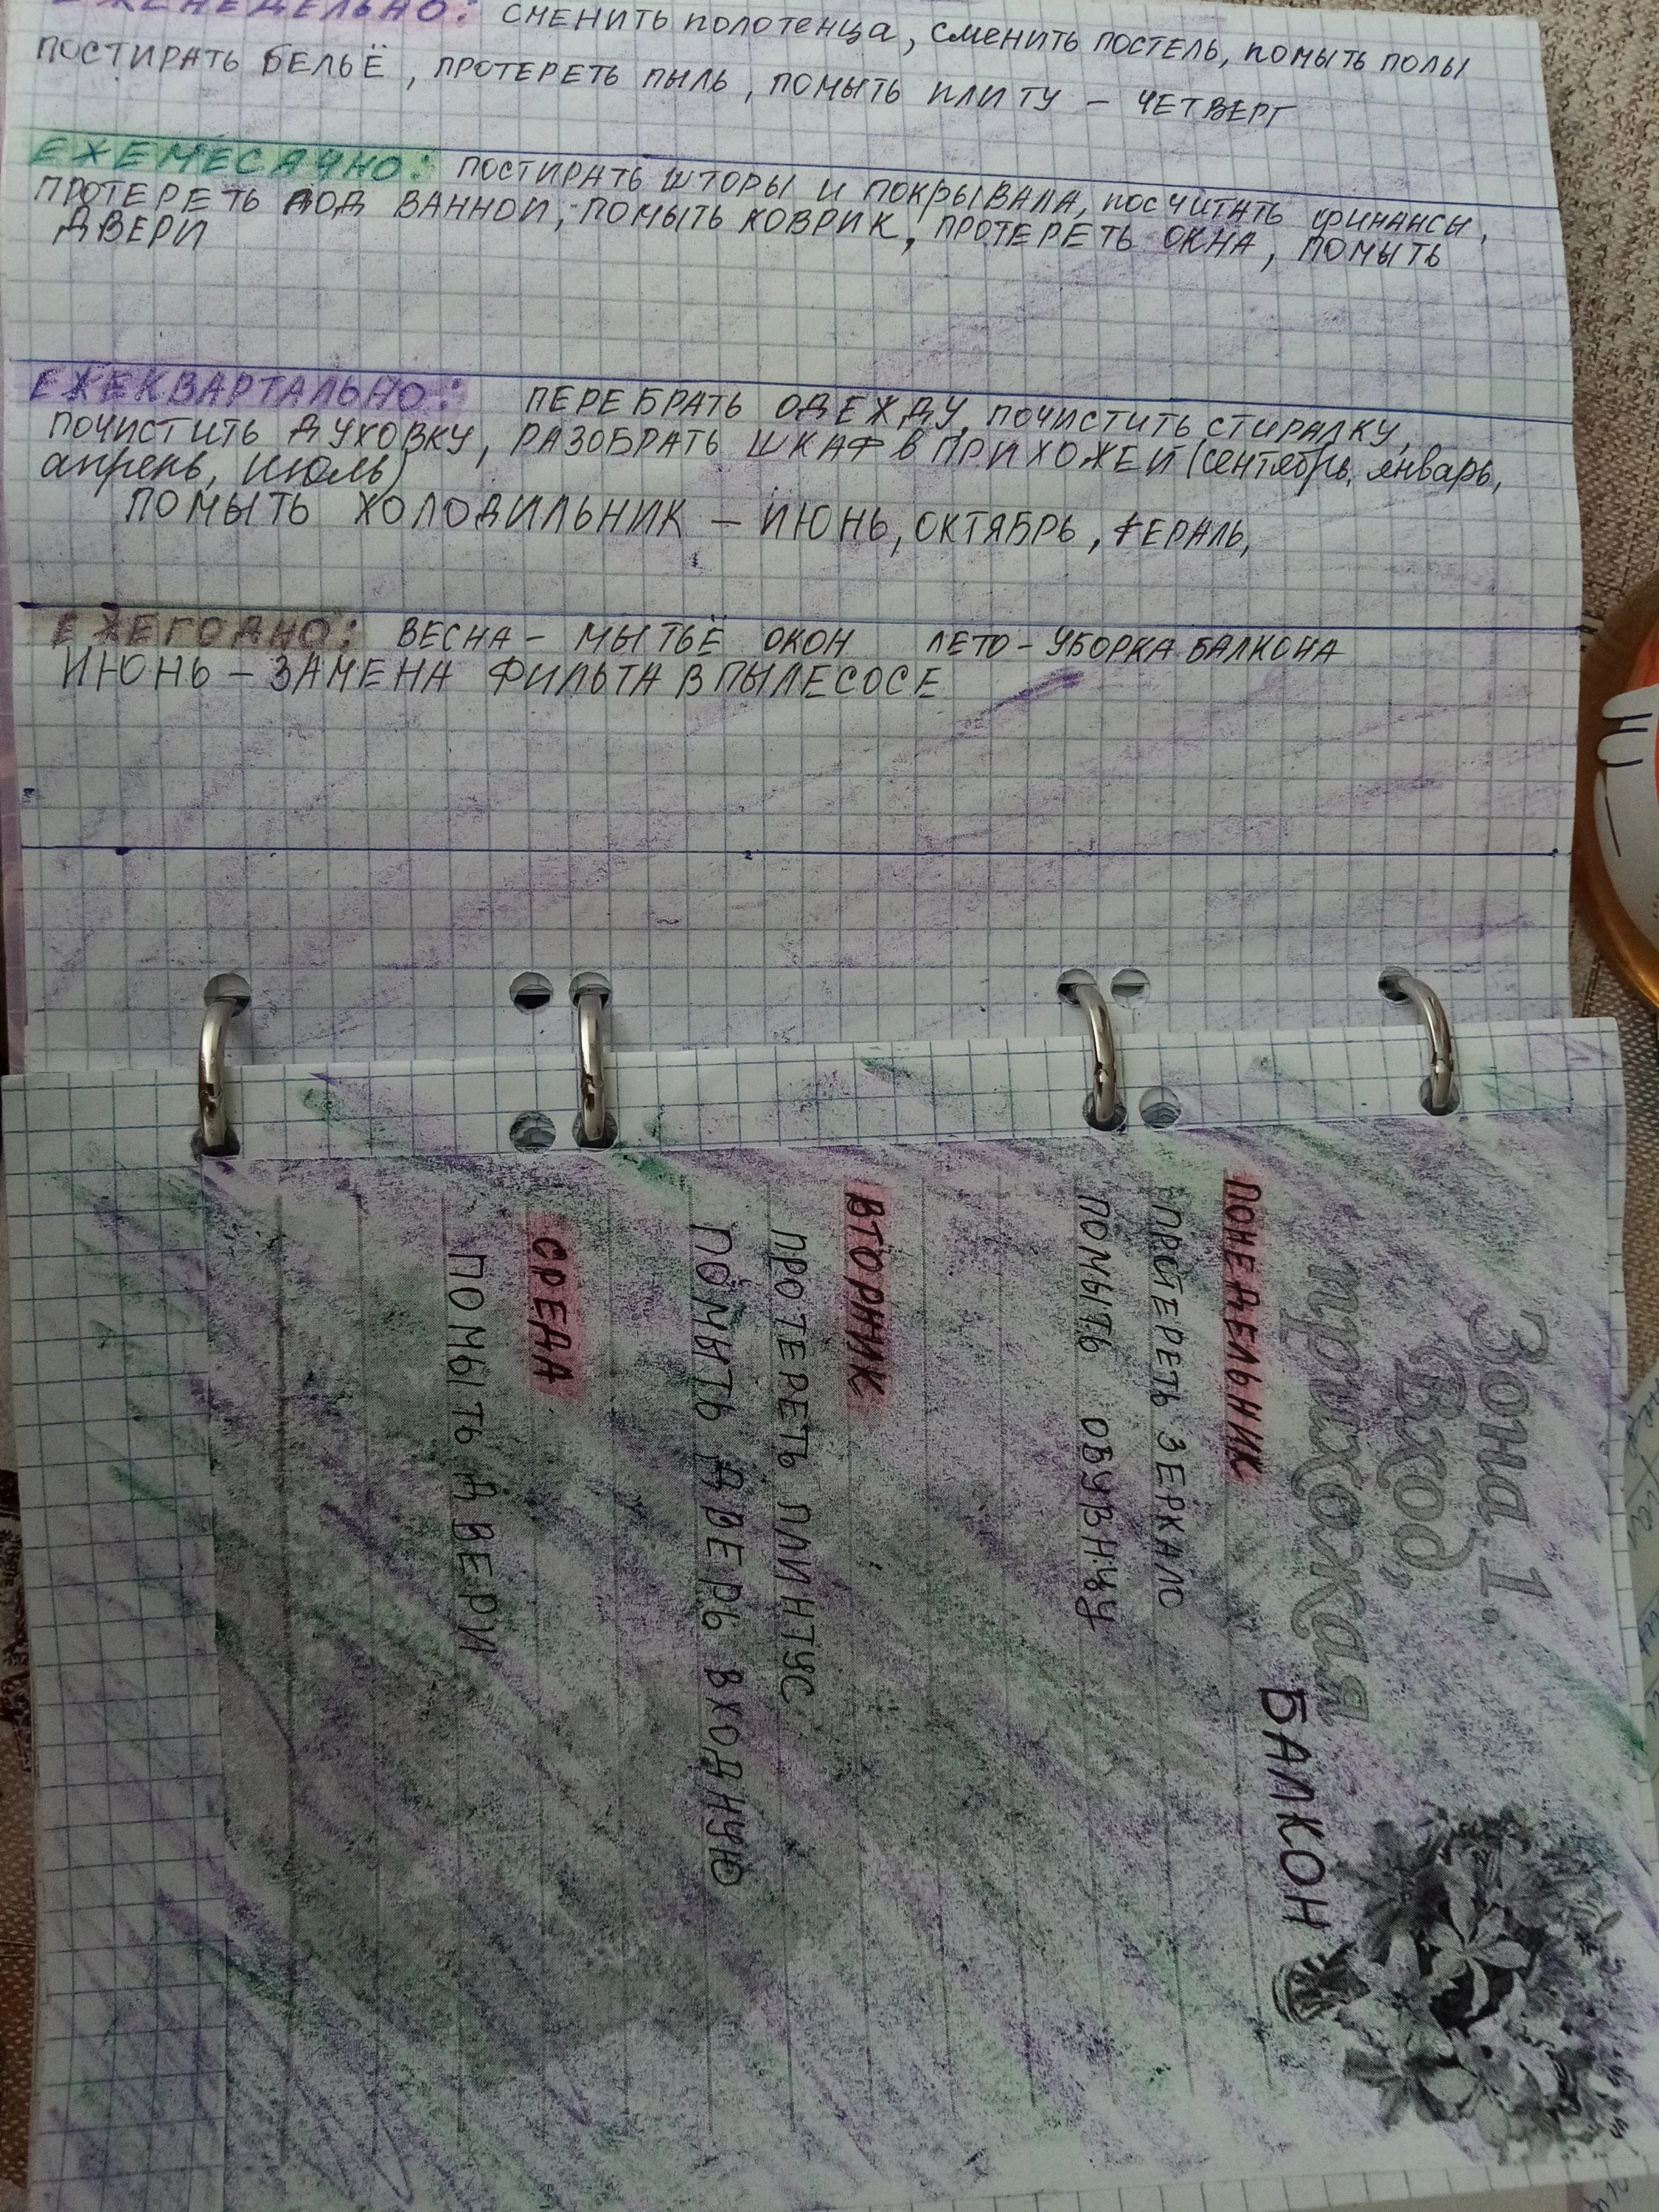 ЕЖЕНЕДЕЛЬНО: СМЕНИТЬ ПОЛОТЕНЦА, СМЕНИТЬ ПОСТЕЛЬ, ПОМЫТЬ ПОЛЫ
ПОСТИРАТЬ БЕЛЬЁ, ПРОТЕРЕТЬ ПЫЛЬ, ПОМЫТЬ ПЛИТУ – ЧЕТВЕРГ
ЕЖЕМЕСАЧНО: ПОСТИРАТЬ ШТОРЫ И ПОКРЫВАЛА, ПОСЧИТАТЬ ФИНАНСЫ,
ПРОТЕРЕТЬ ПОД ВАННОЙ, ПОМЫТЬ КОВРИК, ПРОТЕРЕТЬ ОКНА, ПОМЫТЬ
ДВЕРИ
ЕЖЕКВАРТАЛЬНО: ПЕРЕБРАТЬ ОДЕЖДУ, ПОЧИСТИТЬ СТИРАЛКУ,
ПОЧИСТИТЬ ДУХОВКУ, РАЗОБРАТЬ ШКАФ В ПРИХОЖЕЙ (сентябрь, январь,
апрель, июль)
ПОМЫТЬ ХОЛОДИЛЬНИК – ИЮНЬ, ОКТЯБРЬ, ФЕРАЛЬ,
ЕЖЕГОДНО: ВЕСНА – МЫТЬЁ ОКОН ЛЕТО – УБОРКА БАЛКОНА
ИЮНЬ – ЗАМЕНА ФИЛЬТА В ПЫЛЕСОСЕ
Зона 1.
Вход,
прихожая
БАЛКОН
ПОНЕДЕЛЬНИК
ПРОТЕРЕТЬ ЗЕРКАЛО
ПОМЫТЬ ОБУВНЦУ
ВТОРНИК
ПРОТЕРЕТЬ ПЛИНТУС
ПОМЫТЬ ДВЕРЬ ВХОДНУЮ
СРЕДА
ПОМЫТЬ ДВЕРИ